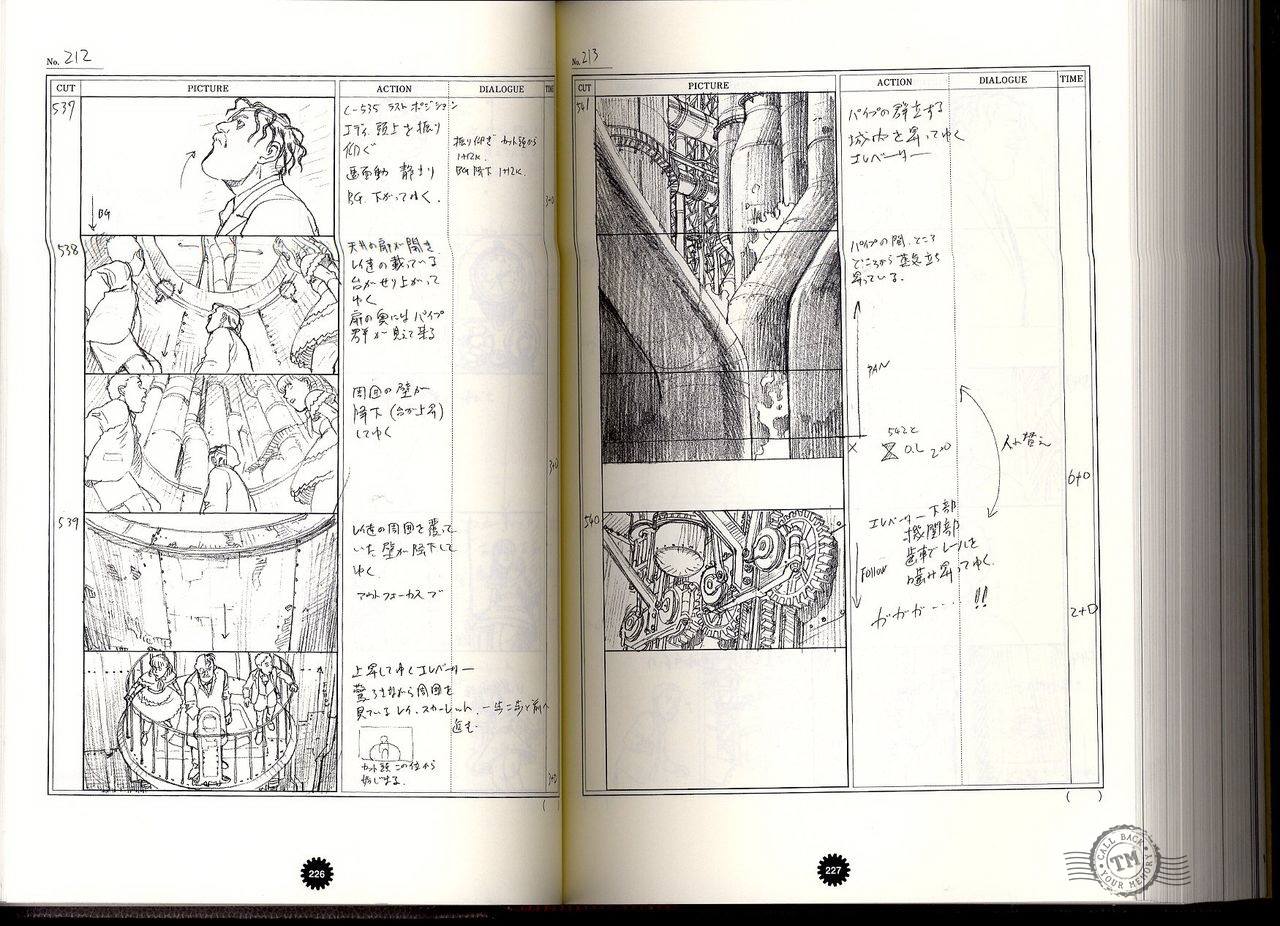 No. 212
CUT PICTURE ACTION DIALOGUE TIME
539
C-535 ラストポジション
エディ 頭上を振り
仰ぐ
振り仰ぎ カット頭から
1+12K.
BG降下 1+12K.
静まり
BG 下がってゆく.
BG
3+0
538
天井の扉が開き
レイ達の載っている
台がせり上がって
ゆく
扉の奥にはパイプ
群が見えて来る
周囲の壁が
降下(台が上昇)
してゆく
3+0
539
レイ達の周囲を覆って
いた壁が降下して
ゆく
アウトフォーカスで
上昇してゆくエレベーター
驚きながら周囲を
見ているレイ、スカーレット. 一歩二歩と前へ
進む.
カット頭 この位から
3+0
( )
226
No. 213
CUT PICTURE ACTION DIALOGUE TIME
541
パイプの群立する
城内を昇ってゆく
エレベーター
パイプの間、ところ
どころから蒸気立ち
昇っている.
PAN
542と
O.L 2+0
入れ替え
6+0
540
エレベーター下部
機関部
歯車でレールを
噛み昇ってゆく.
Follow
ガガガ---- !!
2+0
( )
227
CALL BACK
TM
YOUR MEMORY